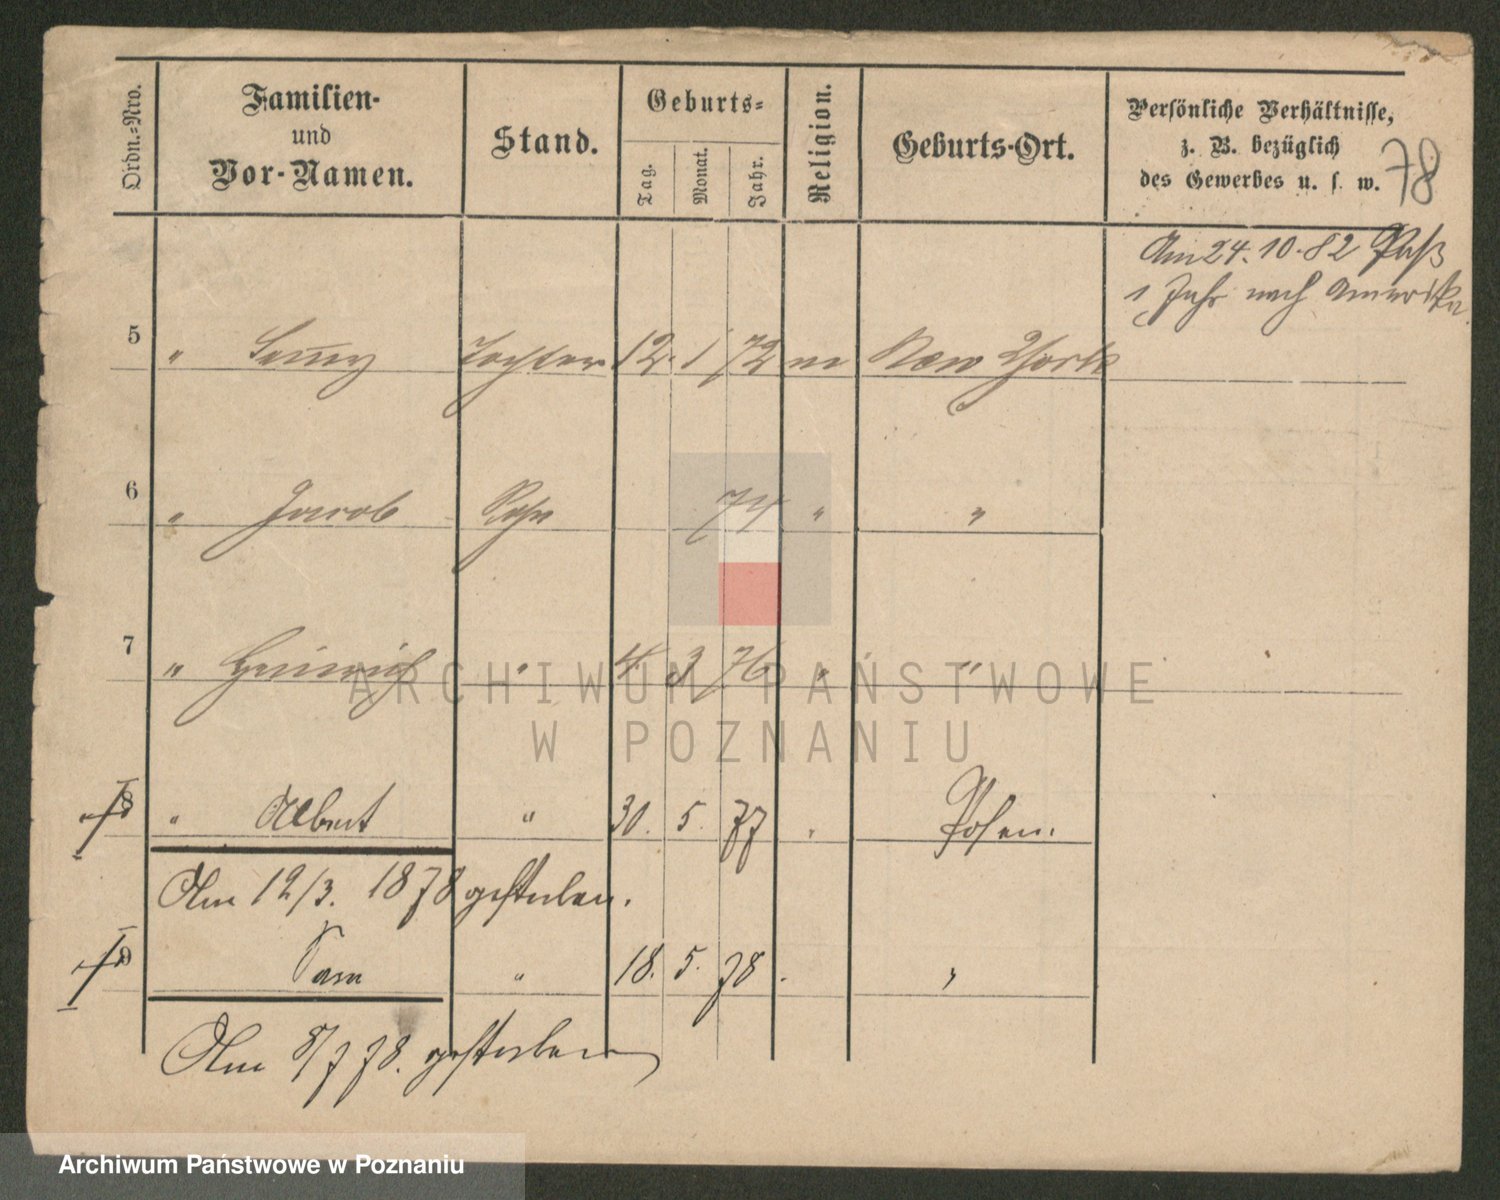 Ordn.-Nro.
Familien-
und
Vor-Namen.
Stand.
Geburts-
Tag.
Monat.
Jahr.
Religion.
Geburts-Ort.
Persönliche Verhältnisse,
z. B. bezüglich
des Gewerbes u. s. w.
78
Am 24.10.82 Paß
1 Jahr nach Amerika
5 " Tochter 12. 1 72 m New York
6 " Jacob Sohn 74 " "
7 " Heinrich " 4. 3 76 " "
8 " Albert " 30. 5. 77 " Posen.
Am 12/3. 1878 gestorben.
9 Sam " 18. 5. 78 " "
Am 8/7 78. gestorben
ARCHIWUM PAŃSTWOWE
W POZNANIU
Archiwum Państwowe w Poznaniu